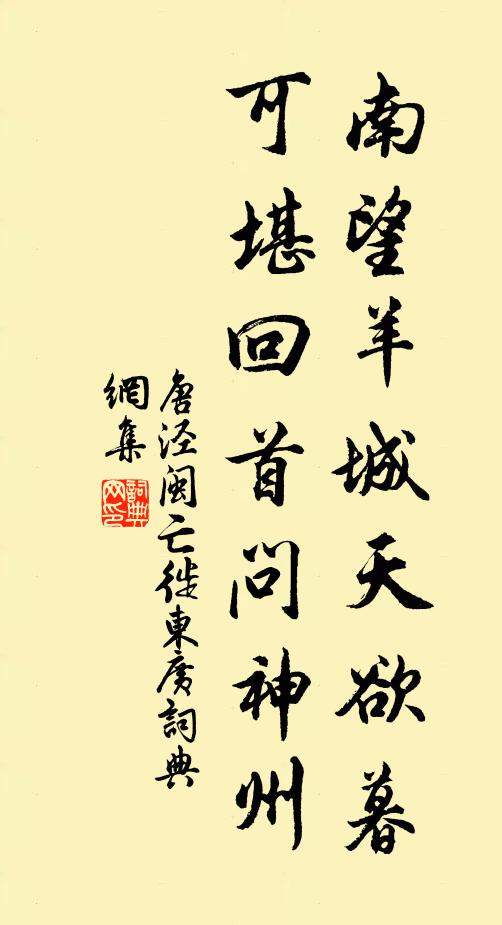 南望羊城天欲暮
可堪回首問神州
唐泾闽亡徙東廣詞典
網集
詞典
网印